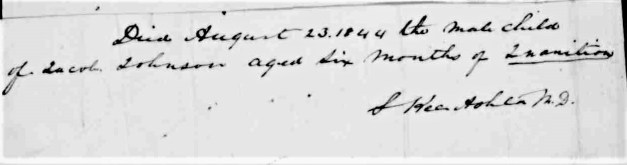 Died August 23. 1844 the male child
of Jacob Johnson aged Six Months of Inanition
M.D.